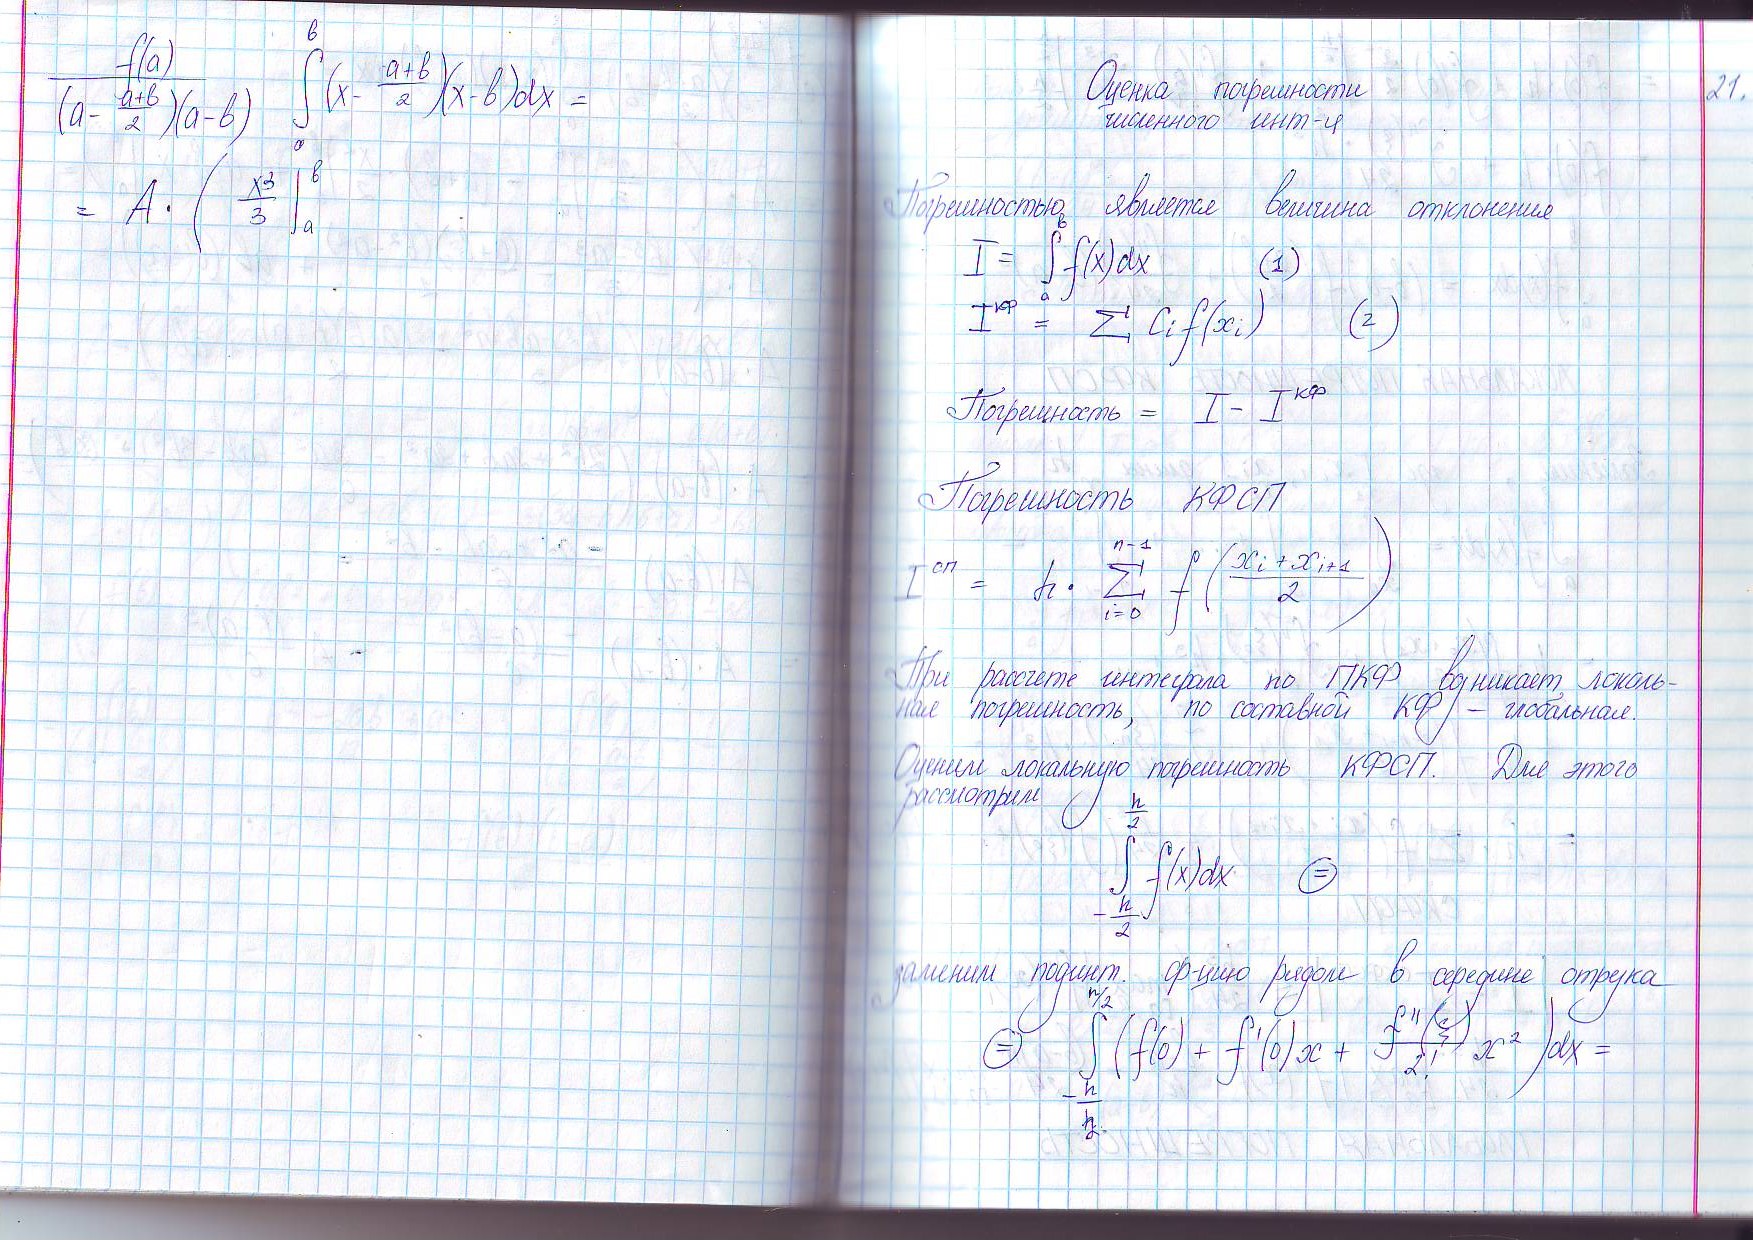 f(a) / (a - (a+b)/2)(a-b) ∫_a^b (x - (a+b)/2)(x-b)dx =
= A · ( x³/3 |_a^b
21.
Оценка погрешности
численного инт-я
Погрешностью является величина отклонения
I = ∫_a^b f(x)dx (1)
I^кф = ∑ C_i f(x_i) (2)
Погрешность = I - I^кф
Погрешность КФСП
I^сп = h · ∑_{i=0}^{n-1} f( (x_i + x_{i+1})/2 )
При рассчете интеграла по ПКФ возникает локаль-
ная погрешность, по составной КФ - глобальная.
Оценим локальную погрешность КФСП. Для этого
рассмотрим
∫_{-h/2}^{h/2} f(x)dx ⊜
заменим подинт. ф-цию рядом в середине отрезка
⊜ ∫_{-h/2}^{h/2} (f(0) + f'(0)x + f''(ξ)/2! x²)dx =